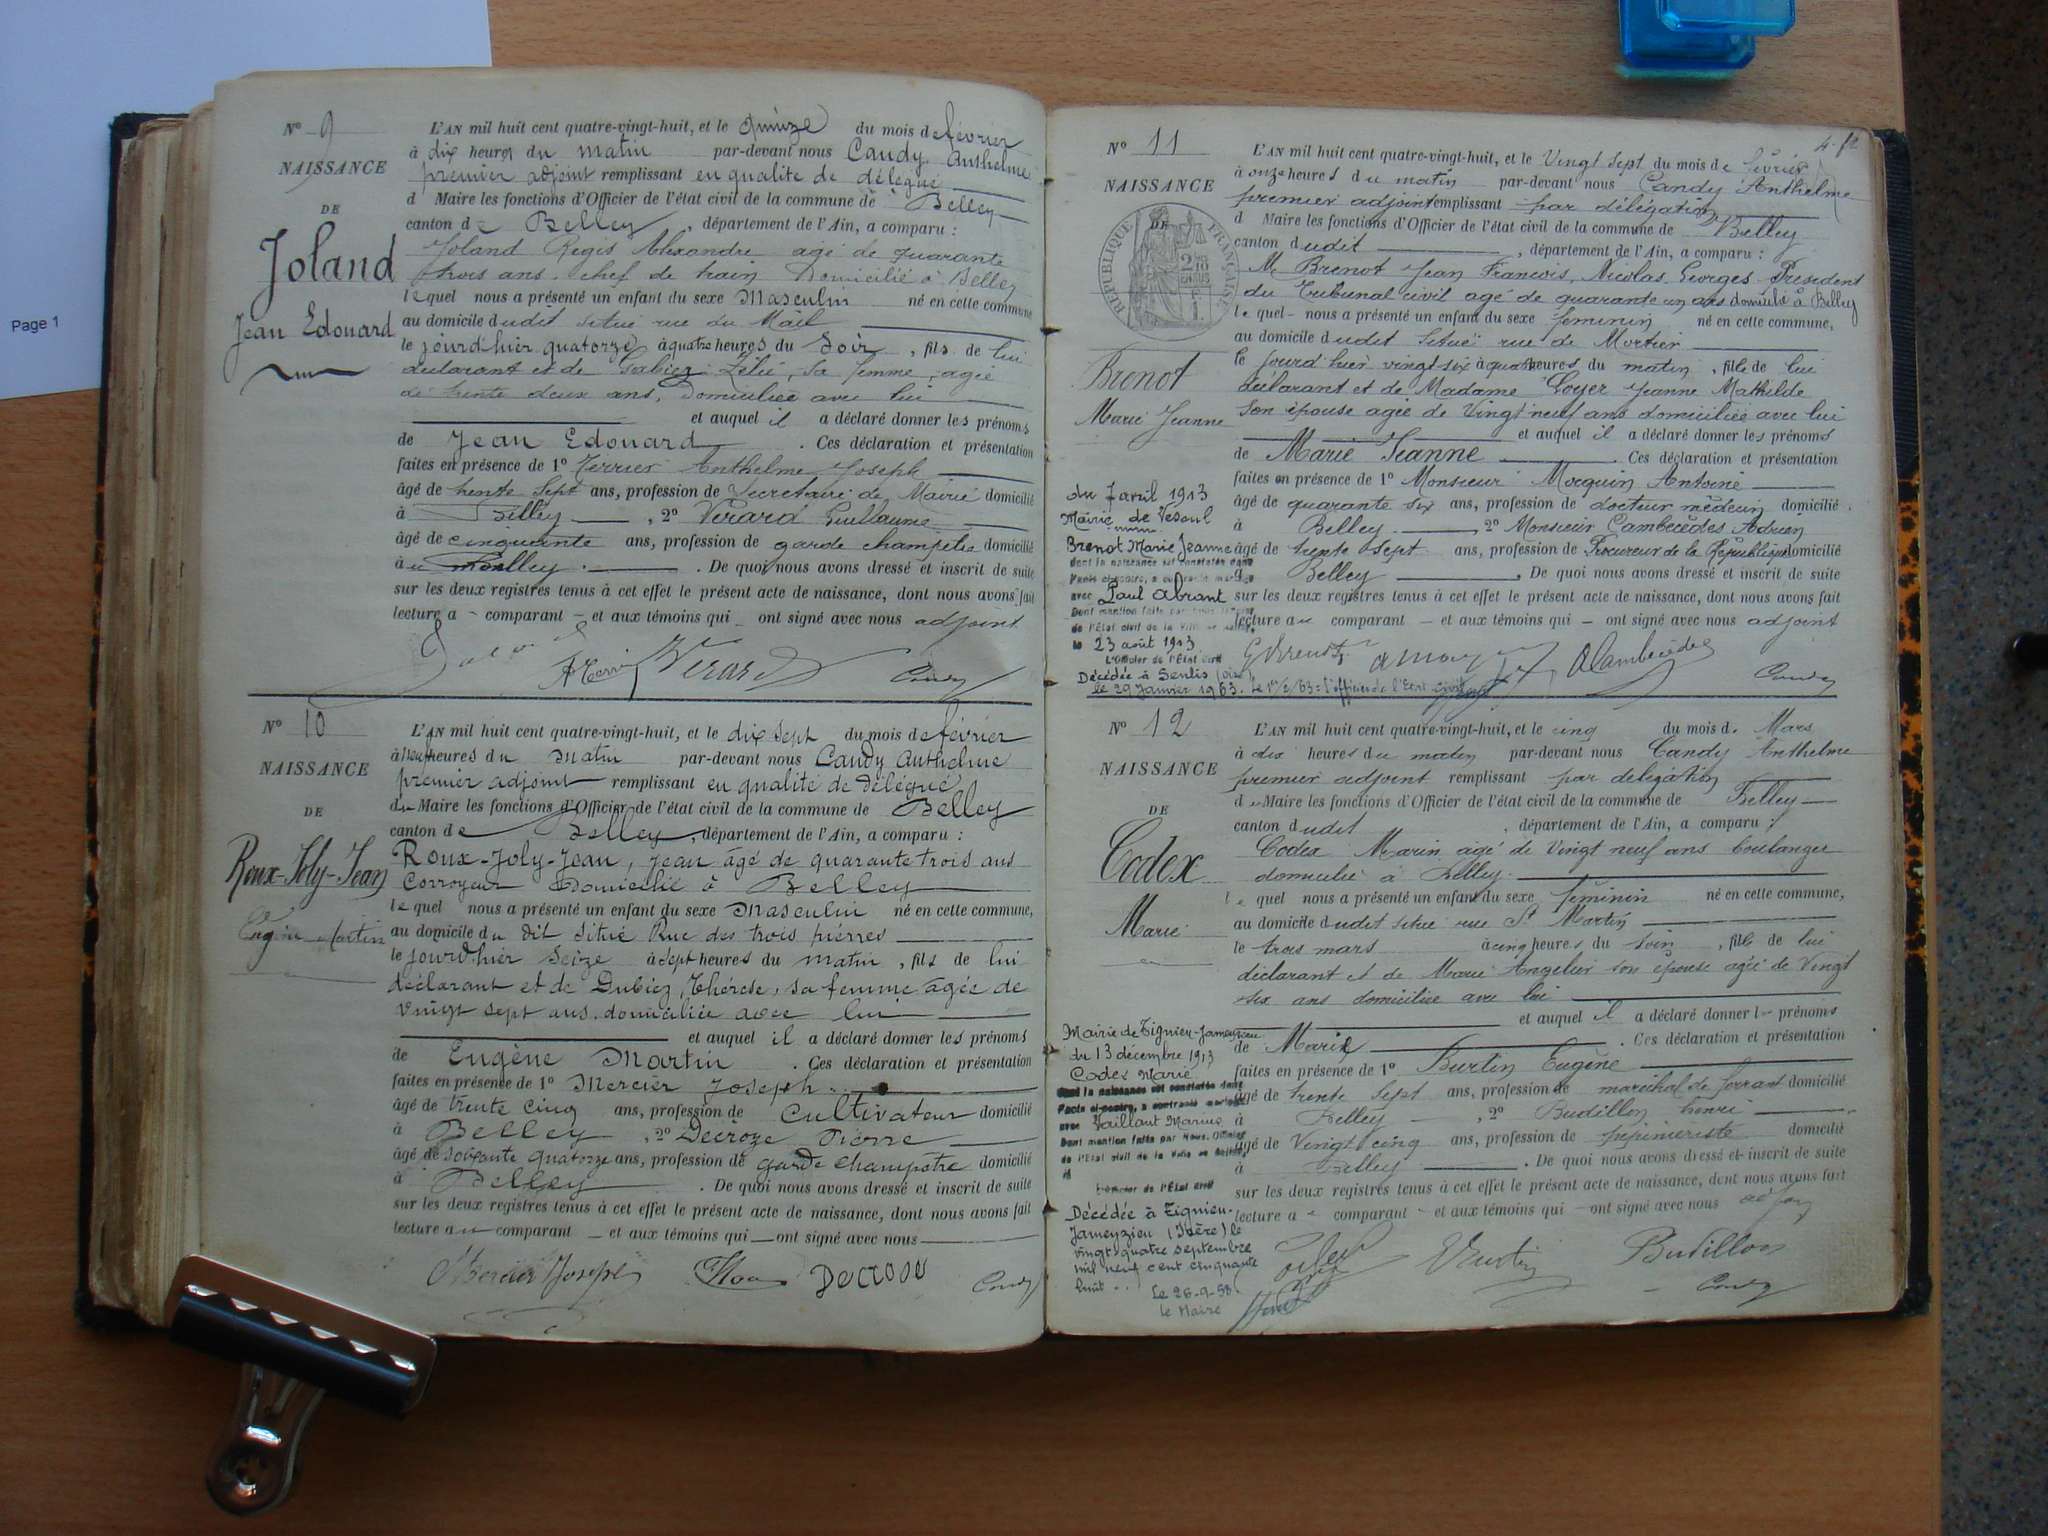 Page 1
N° 9
NAISSANCE
DE
Joland
Jean Edouard
L'AN mil huit cent quatre-vingt-huit, et le quinze du mois de février
à dix heures du matin par-devant nous Candy Anthelme
premier adjoint remplissant en qualité de délégué
d Maire les fonctions d'Officier de l'état civil de la commune de Belley
canton de Belley, département de l'Ain, a comparu :
Joland Régis Alexandre agé de quarante
trois ans, chef de train Domicilié à Belley
lequel nous a présenté un enfant du sexe Masculin né en cette commune
au domicile dudit situé rue du Mail
le jourd'hier quatorze à quatre heures du Soir, fils de lui
déclarant et de Zélie, sa femme, agée
de trente deux ans, Domiciliée avec lui
et auquel il a déclaré donner les prénoms
de Jean Edouard. Ces déclaration et présentation
faites en présence de 1° Ferrier Anthelme Joseph
âgé de trente Sept ans, profession de Secrétaire de Mairie domicilié
à Belley, 2° Vérard Guillaume
âgé de cinquante ans, profession de garde champêtre domicilié
à Belley. De quoi nous avons dressé et inscrit de suite
sur les deux registres tenus à cet effet le présent acte de naissance, dont nous avons fait
lecture a comparant et aux témoins qui ont signé avec nous adjoint
Verard Candy
N° 10
NAISSANCE
DE
Roux-Joly-Jean
Eugène Martin
L'AN mil huit cent quatre-vingt-huit, et le dix sept du mois de février
à neuf heures du matin par-devant nous Candy Anthelme
premier adjoint remplissant en qualité de délégué
du Maire les fonctions d'Officier de l'état civil de la commune de Belley
canton de Belley, département de l'Ain, a comparu :
Roux-Joly-Jean, Jean âgé de quarante trois ans
Corroyeur Domicilié à Belley
lequel nous a présenté un enfant du sexe Masculin né en cette commune,
au domicile du dit situé Rue des trois pierres
le jourd'hier Seize à sept heures du matin, fils de lui
déclarant et de Dubiez, Thérèse, sa femme âgée de
vingt sept ans, domiciliée avec lui
et auquel il a déclaré donner les prénoms
de Eugène Martin. Ces déclaration et présentation
faites en présence de 1° Mercier Joseph
âgé de trente cinq ans, profession de Cultivateur domicilié
à Belley, 2° Décroze Pierre
âgé de soixante quatorze ans, profession de garde Champêtre domicilié
à Belley. De quoi nous avons dressé et inscrit de suite
sur les deux registres tenus à cet effet le présent acte de naissance, dont nous avons fait
lecture au comparant et aux témoins qui ont signé avec nous
Mercier Joseph Candy
4 f°
N° 11
NAISSANCE
DE
RÉPUBLIQUE FRANÇAISE
Brenot
Marie Jeanne
L'AN mil huit cent quatre-vingt-huit, et le Vingt sept du mois de février
à onze heures du matin par-devant nous Candy Anthelme
premier adjoint remplissant par délégation
d Maire les fonctions d'Officier de l'état civil de la commune de Belley
canton dudit, département de l'Ain, a comparu :
M. Brenot Jean François, Nicolas Georges Président
du Tribunal civil agé de quarante un ans domicilié à Belley
lequel nous a présenté un enfant du sexe féminin né en cette commune,
au domicile dudit situé rue de Mortier
le jourd'hier vingt-six à quatre heures du matin, fille de lui
déclarant et de Madame Loyer Jeanne Mathilde
Son épouse agée de Vingt neuf ans domiciliée avec lui
et auquel il a déclaré donner les prénoms
de Marie Jeanne. Ces déclaration et présentation
faites en présence de 1° Monsieur Mocquin Antoine
âgé de quarante six ans, profession de docteur médecin domicilié
à Belley, 2° Monsieur Cambecèdes Adrien
âgé de trente sept ans, profession de Procureur de la République domicilié
à Belley. De quoi nous avons dressé et inscrit de suite
sur les deux registres tenus à cet effet le présent acte de naissance, dont nous avons fait
lecture au comparant et aux témoins qui ont signé avec nous adjoint
GBrenot ACambecèdes Candy
du 7 avril 1913
Mairie de Vesoul
Brenot Marie Jeanne
dont la naissance est constatée dans
l'acte ci-contre, a contracté mariage
avec Paul Abrant
Dont mention faite par nous Officier
de l'État civil de la Ville de Belley,
le 23 août 1913
L'Officier de l'État civil
Décédée à Senlis (Oise),
le 29 Janvier 1963. Le 1er/2/63 : l'officier de l'Etat civil
N° 12
NAISSANCE
DE
Codex
Marie
L'AN mil huit cent quatre-vingt-huit, et le cinq du mois de Mars
à dix heures du matin par-devant nous Candy Anthelme
premier adjoint remplissant par délégation
du Maire les fonctions d'Officier de l'état civil de la commune de Belley
canton dudit, département de l'Ain, a comparu :
Codex Marin agé de Vingt neuf ans boulanger
domicilié à Belley
le quel nous a présenté un enfant du sexe féminin né en cette commune,
au domicile dudit situé rue St Martin
le trois mars à cinq heures du soir, fille de lui
déclarant et de Marie Angelier son épouse agée de Vingt
six ans domiciliée avec lui
et auquel il a déclaré donner les prénoms
de Marie. Ces déclaration et présentation
faites en présence de 1° Burtin Eugène
âgé de trente sept ans, profession de maréchal de ferrant domicilié
à Belley, 2° Budillon henri
âgé de Vingt cinq ans, profession de pépinieriste domicilié
à Belley. De quoi nous avons dressé et inscrit de suite
sur les deux registres tenus à cet effet le présent acte de naissance, dont nous avons fait
lecture a comparant et aux témoins qui ont signé avec nous
Codex EBurtin Budillon Candy
Mairie de Tignieu-Jameyzieu
du 13 décembre 1913
Codex Marie
dont la naissance est constatée dans
l'acte ci-contre, a contracté mariage
avec Vaillant Marius
Dont mention faite par Nous, Officier
de l'État civil de la Ville de Belley,
L'Officier de l'État civil
Décédée à Tignieu-
Jameyzieu (Isère) le
vingt-quatre septembre
mil neuf cent cinquante
huit.
Le 26-9-58
le Maire